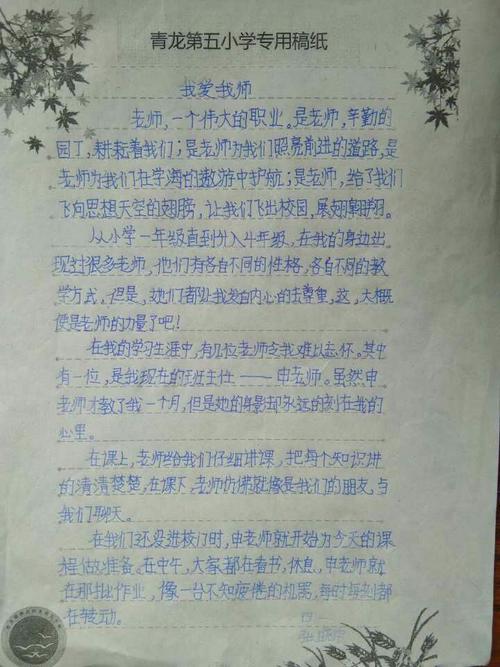 青龙第五小学专用稿纸
我爱我师
老师,一个伟大的职业。是老师,辛勤的
园丁,耕耘着我们;是老师为我们照亮前进的道路,是
老师为我们在学海的遨游中护航;是老师,给了我们
飞向思想天空的翅膀,让我们飞出校园,展翅翱翔。
从小学一年级直到升入4年级,在我的身边出
现过很多老师,他们有各自不同的性格,各自不同的教
学方式。但是,她们都让我发自内心的去尊重,这,大概
便是老师的力量了吧!
在我的学习生涯中,有几位老师令我难以忘怀。其中
有一位,是我现在的班主任——申老师。虽然申
老师才教了我一个月,但是她的身影却永远的刻在我的
心里。
在课上,老师给我们仔细讲课,把每个知识讲
的清清楚楚,在课下,老师仿佛就像是我们的朋友,与
我们聊天。
在我们还没进校门时,申老师就开始为今天的课
程做准备。在中午,大家都在看书,休息,申老师就
在那批作业,像一台不知疲倦的机器,每时每刻都
在转动。
四
张